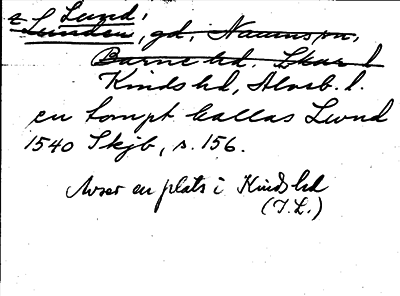 Lund,
Lunden, gd, Naums sn,
Barne hd, Skar. l
Kinds hd, Älvsb. l.
en tompt kallas Lund
1540 Skjb, s. 156.
Avser en plats i Kinds hd
(I.L.)